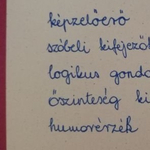 képzelőerő
szóbeli kifejező
logikus gondo
őszinteség ki
humorérzék